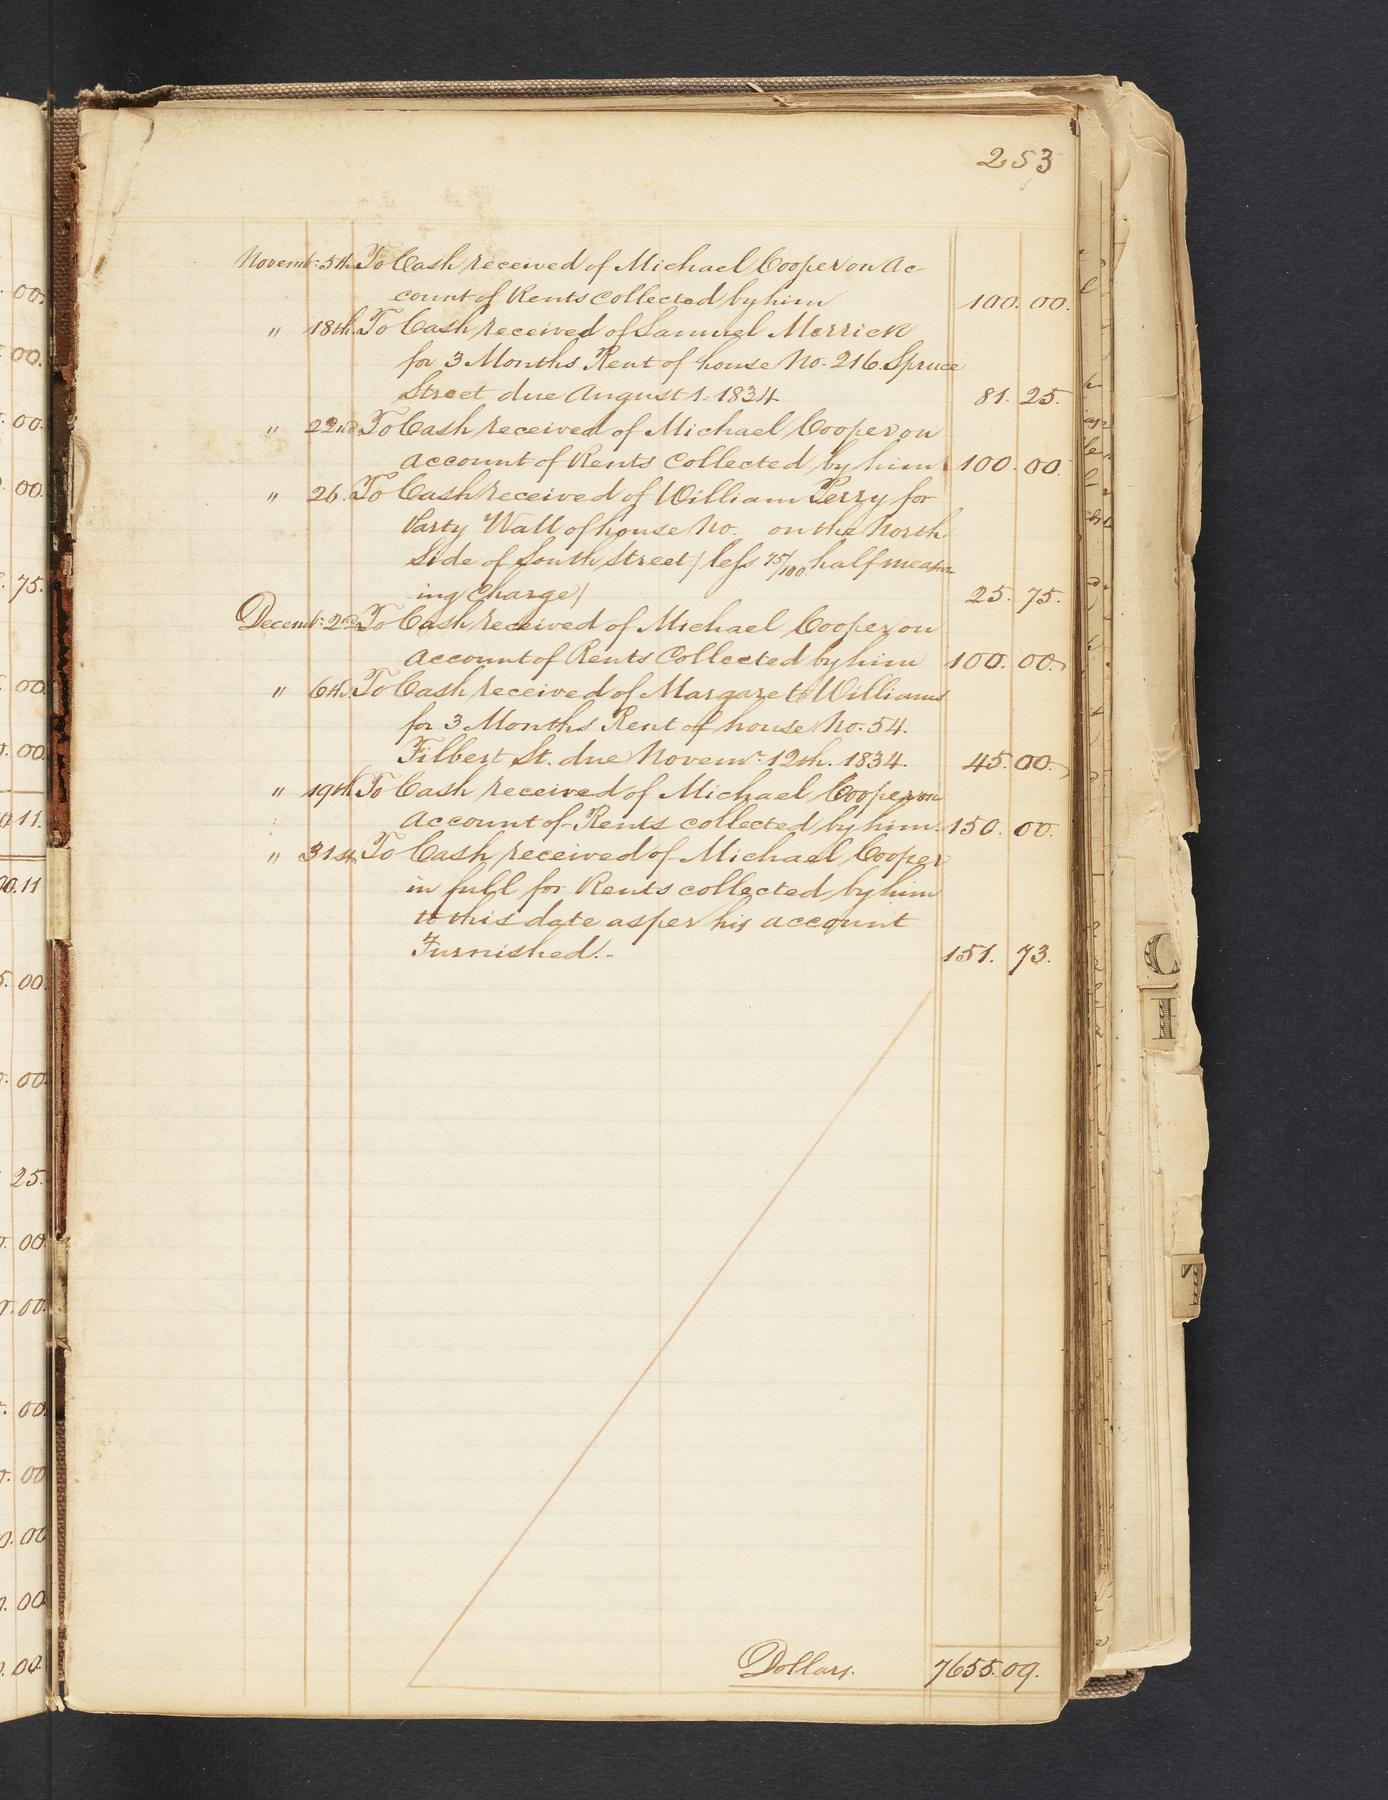 253
Novemr. 5th. To Cash received of Michael Cooper on Ac-
count of Rents collected by him 100. 00.
" 18th. To Cash received of Samuel Merrick
for 3 Months Rent of house No. 216. Spruce
Street due August 1. 1834 81. 25.
" 22nd To Cash received of Michael Cooper on
account of Rents Collected by him 100. 00.
" 26. To Cash received of William Perry for
Party Wall of house No. on the North
Side of South Street (less 75/100 half measur
ing Charge) 25. 75.
Decemr. 2nd To Cash received of Michael Cooper on
account of Rents Collected by him 100. 00.
" 6th. To Cash received of Margaret Williams
for 3 Months Rent of house No. 54.
Filbert St. due Novemr. 12th. 1834. 45. 00.
" 19th To Cash received of Michael Cooper on
account of Rents collected by him. 150. 00.
" 31st To Cash received of Michael Cooper
in full for Rents collected by him
to this date as per his account
Furnished.- 151. 73.
Dollars. 7655.09.
00.
00.
00.
00.
75.
00.
00.
11.
00.11
00.
00.
25.
00.
00.
00.
00.
00.
00.
00.
C
I
T